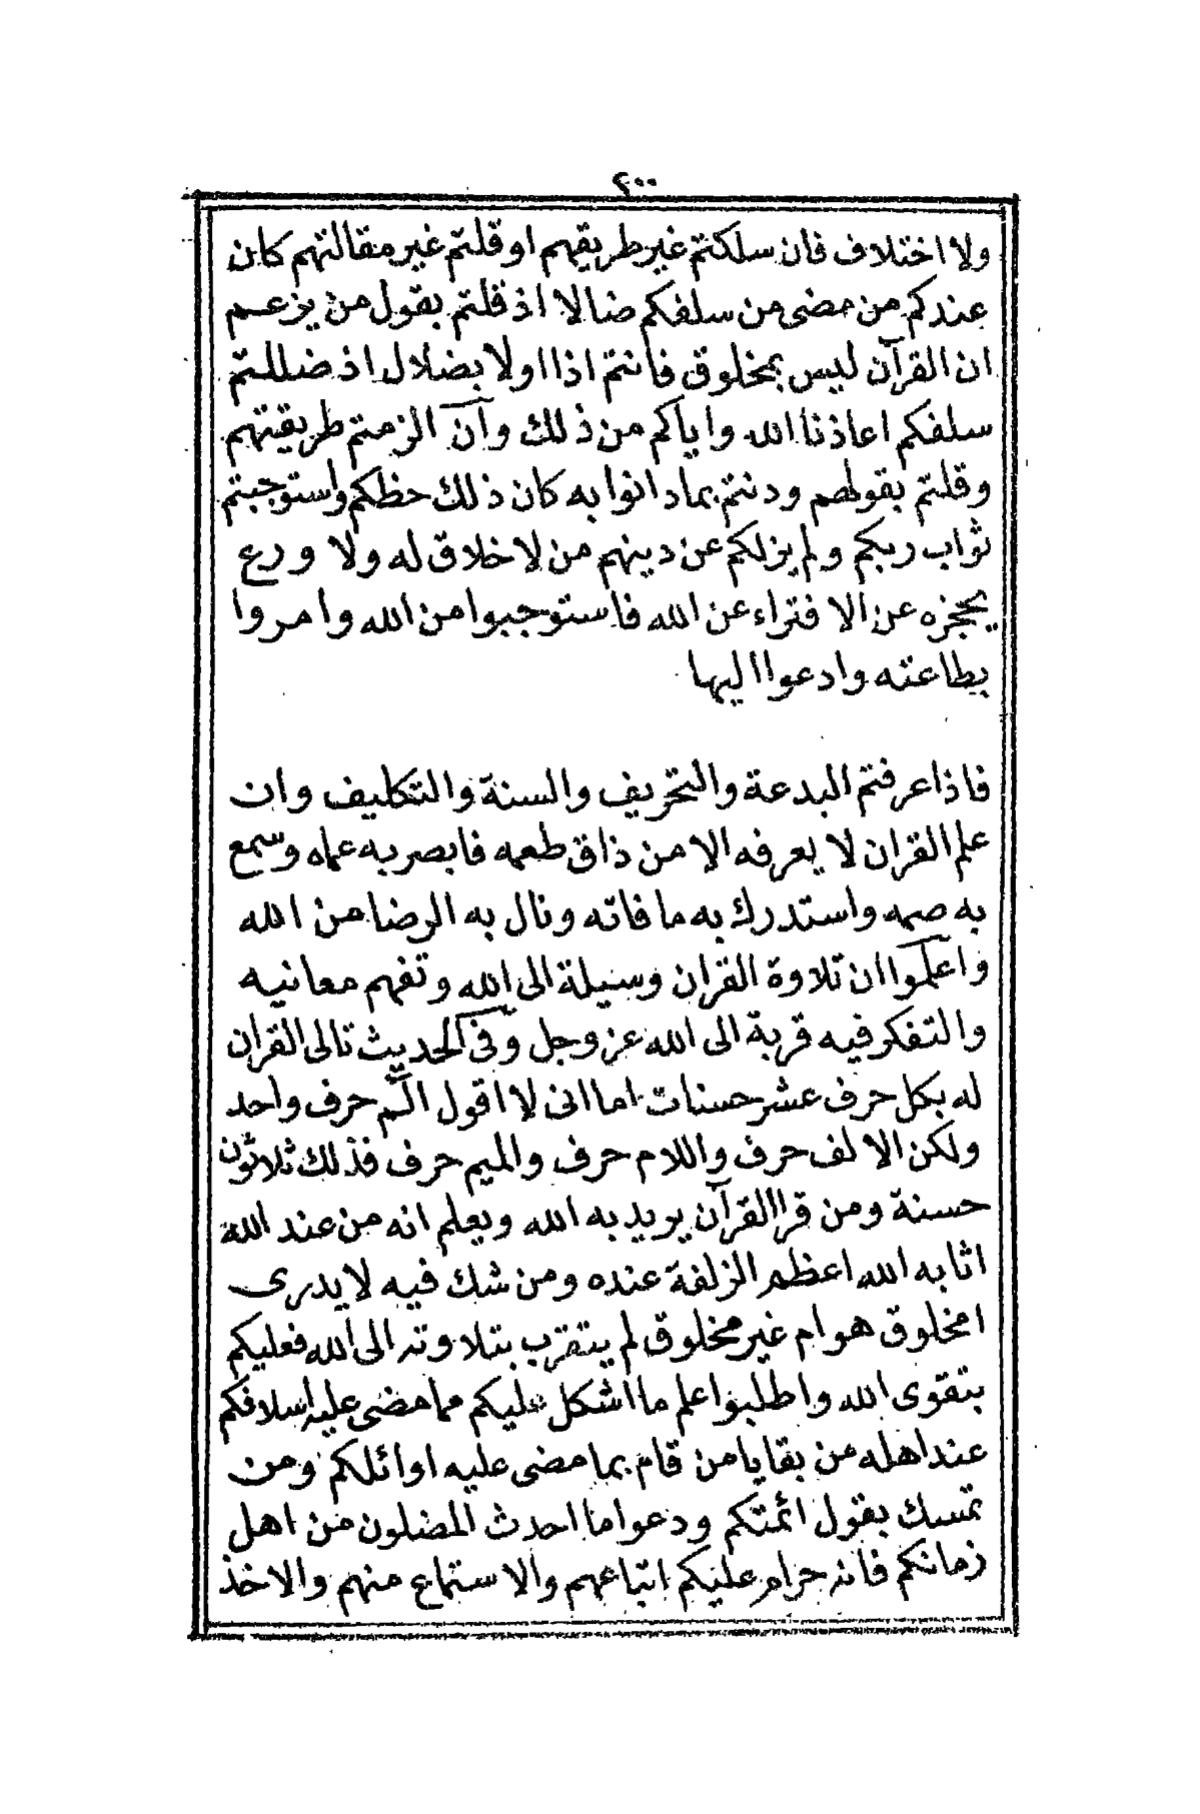 ٢٠٠
ولا اختلاف فان سلكتم غير طريقهم او قلتم غير مقالتهم كان
عندكم من مضى من سلفكم ضالا اذ قلتم بقول من يزعم
ان القرآن ليس بمخلوق فانتم اذا اولا بضلال اذ ضللتم
سلفكم اعاذنا الله واياكم من ذلك وان الزمتم طريقتهم
وقلتم بقولهم ودنتم بما دانوا به كان ذلك حظكم واستوجبتم
ثواب ربكم ولم يزلكم عن دينهم من لا خلاق له ولا ورع
يحجزه عن الافتراء عن الله فاستوجبوا من الله وامروا
بطاعته وادعوا اليها
فاذا عرفتم البدعة والتحريف والسنة والتكليف وان
علم القران لا يعرفه الا من ذاق طعمه فابصر به عماه وسمع
به صمه واستدرك به ما فاته ونال به الرضا من الله
واعلموا ان تلاوة القران وسيلة الى الله وتفهم معانيه
والتفكر فيه قربة الى الله عز وجل وفى الحديث تالى القران
له بكل حرف عشر حسنات اما انى لا اقول الٓم حرف واحد
ولكن الالف حرف واللام حرف والميم حرف فذلك ثلاثون
حسنة ومن قرا القرآن يريد به الله ويعلم انه من عند الله
اثابه الله اعظم الزلفة عنده ومن شك فيه لا يدرى
امخلوق هو ام غير مخلوق لم يتقرب بتلاوته الى الله فعليكم
بتقوى الله واطلبوا علم ما اشكل عليكم مما مضى عليه اسلافكم
عند اهله من بقايا من قام بما مضى عليه اوائلكم ومن
تمسك بقول ائمتكم ودعوا ما احدث المضلون من اهل
زمانكم فانه حرام عليكم اتباعهم والاستماع منهم والاخذ